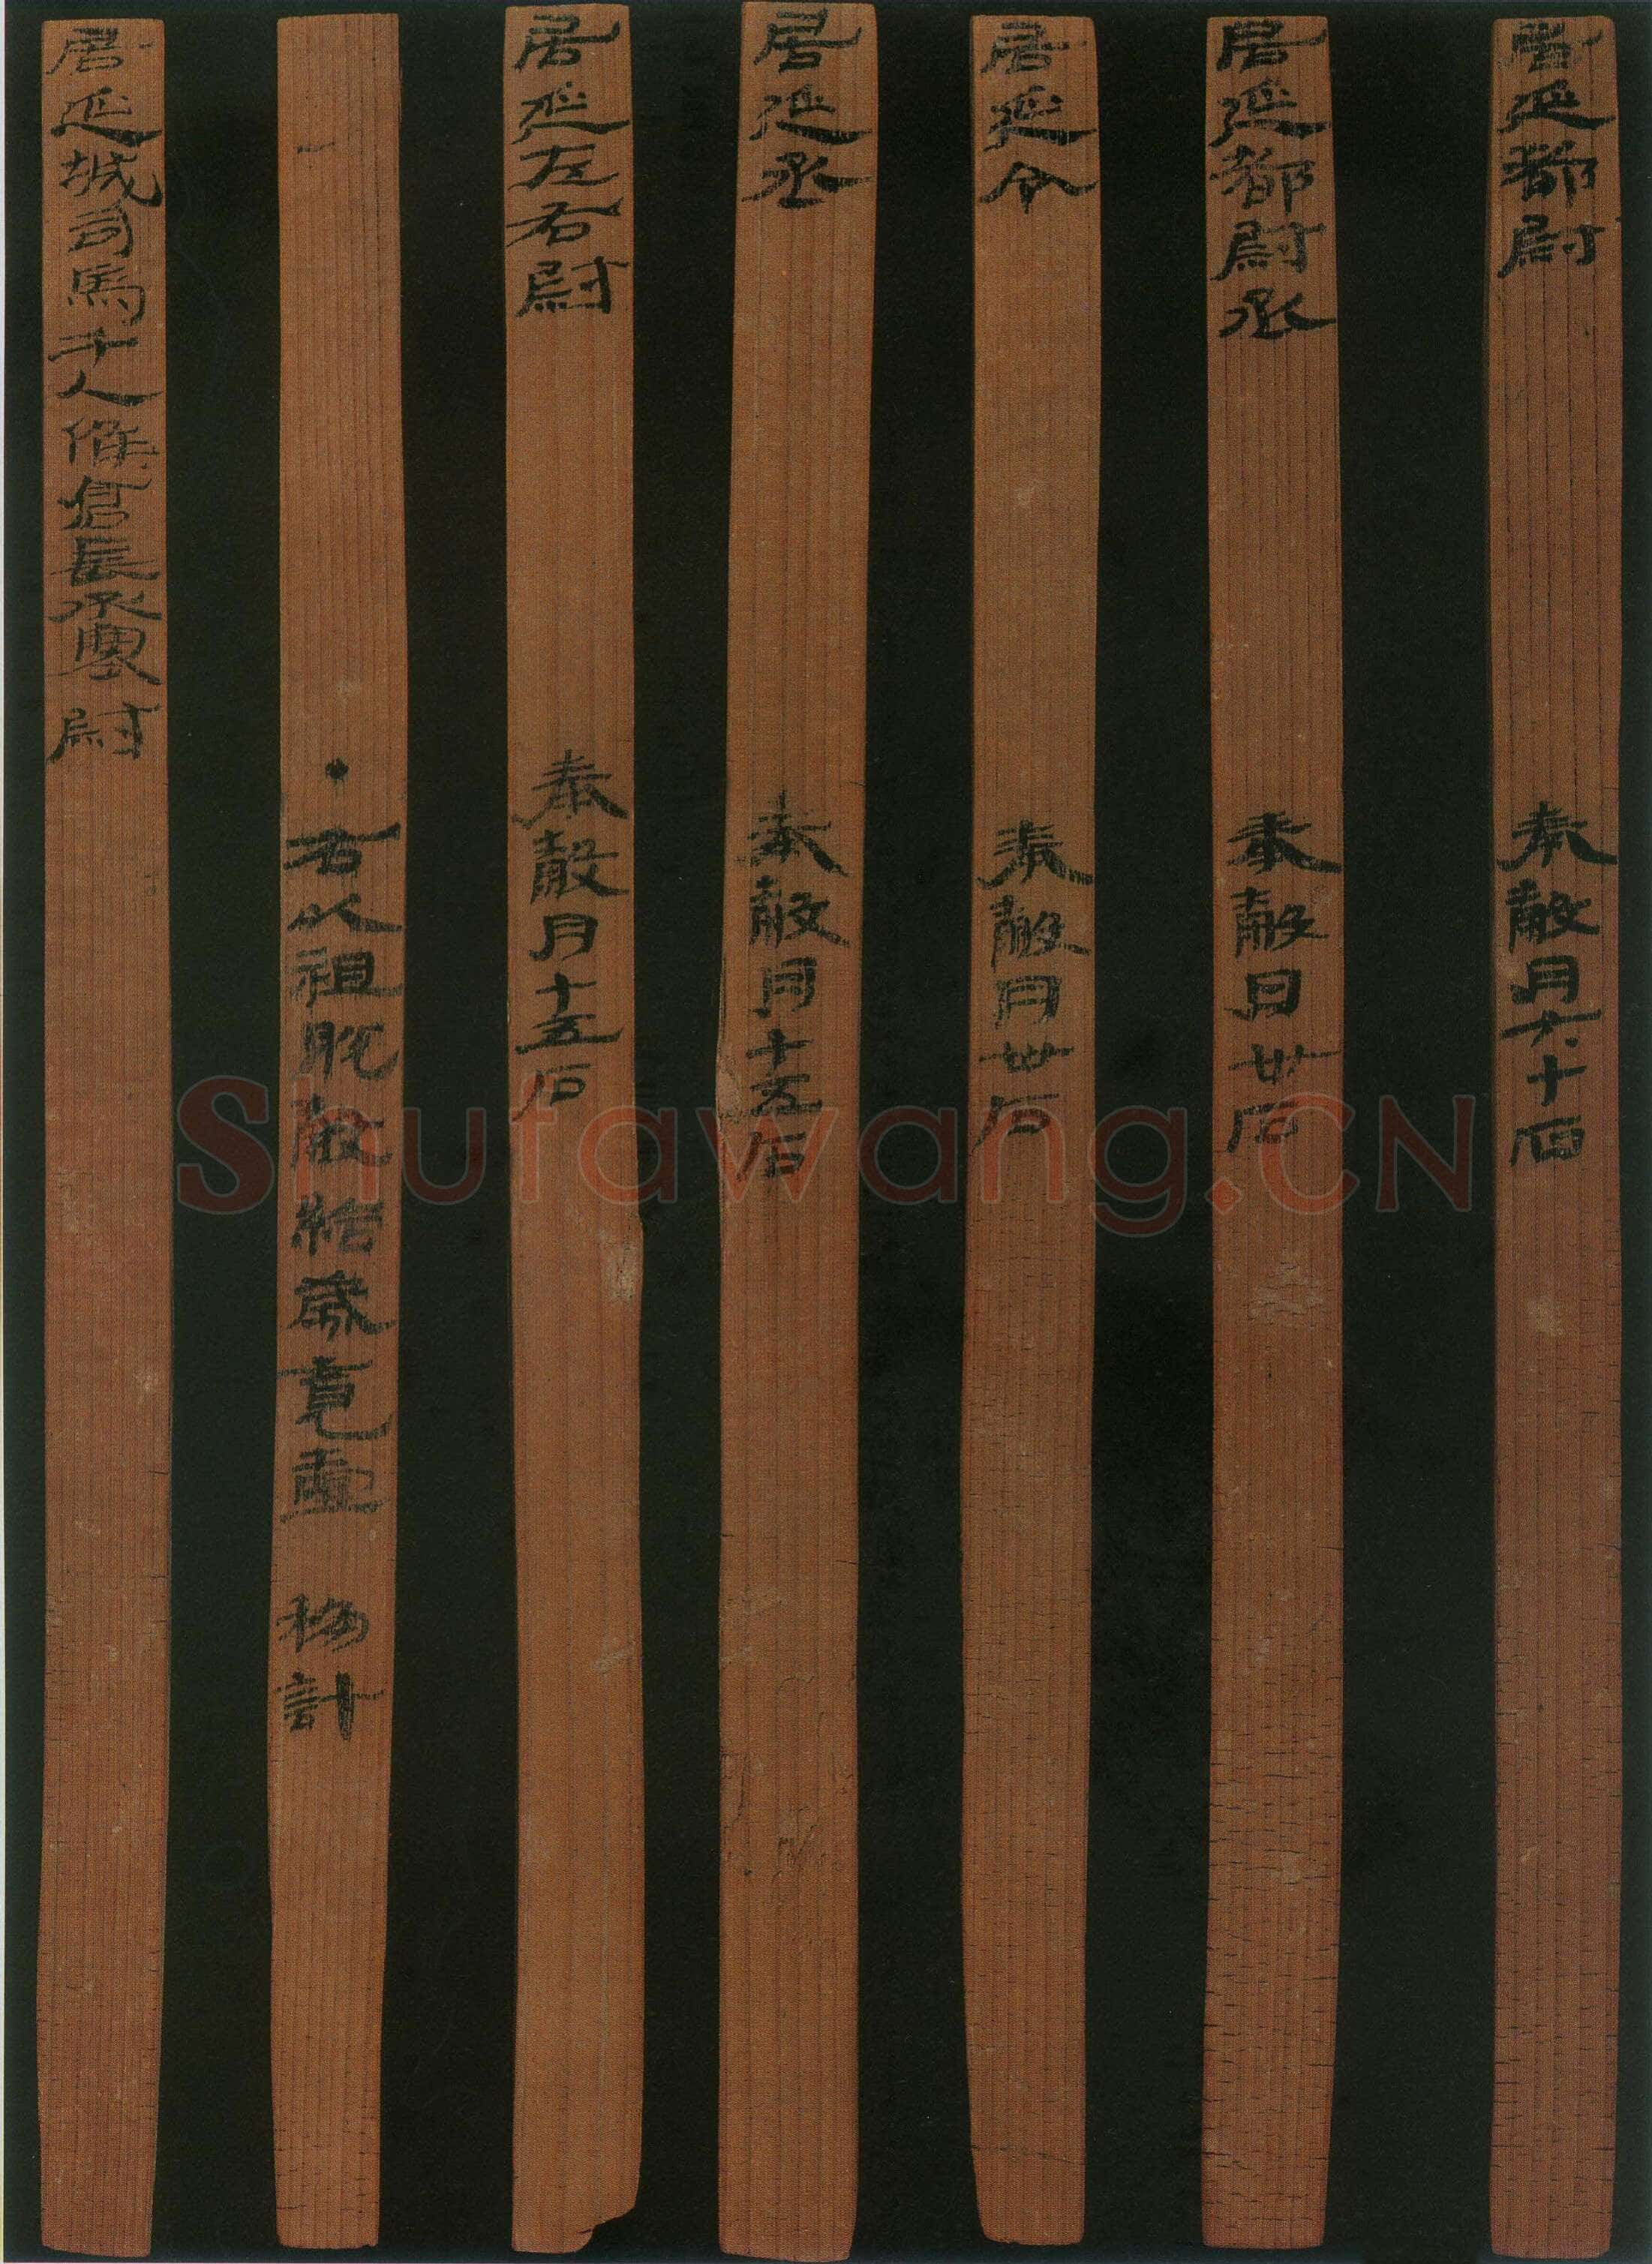 居延都尉 奉穀月六十石
居延都尉丞 奉穀月卅石
居延令 奉穀月卅石
居延丞 奉穀月十五石
居延左右尉 奉穀月十五石
·右以祖脫穀給歲竟壹 移計
居延城司馬千人候倉長丞塞尉
Shufawang.CN